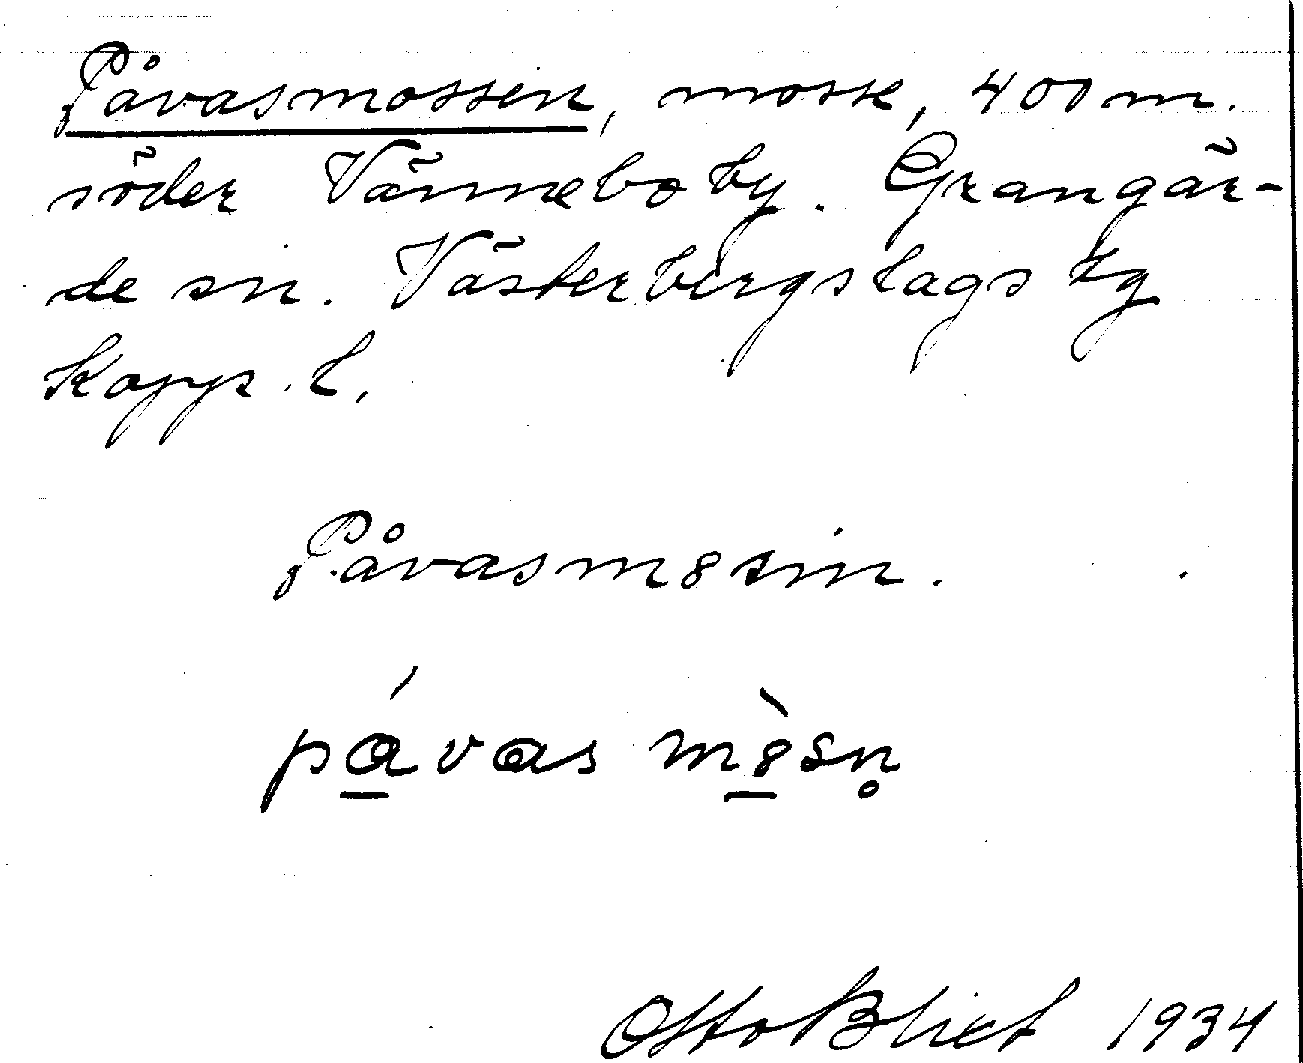 Påvasmossen, mosse, 400 m.
söder Vännebo by. Grangär-
de sn. Västerbergslags tg
Kopp. l.
Påvasm8sin.
pávas m8̀sn̥
Otto Blixt 1934